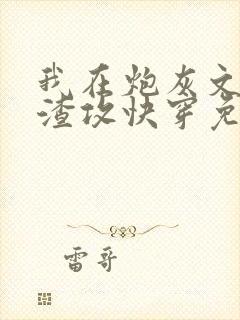 我在炮灰文
渣攻快穿免
雷哥